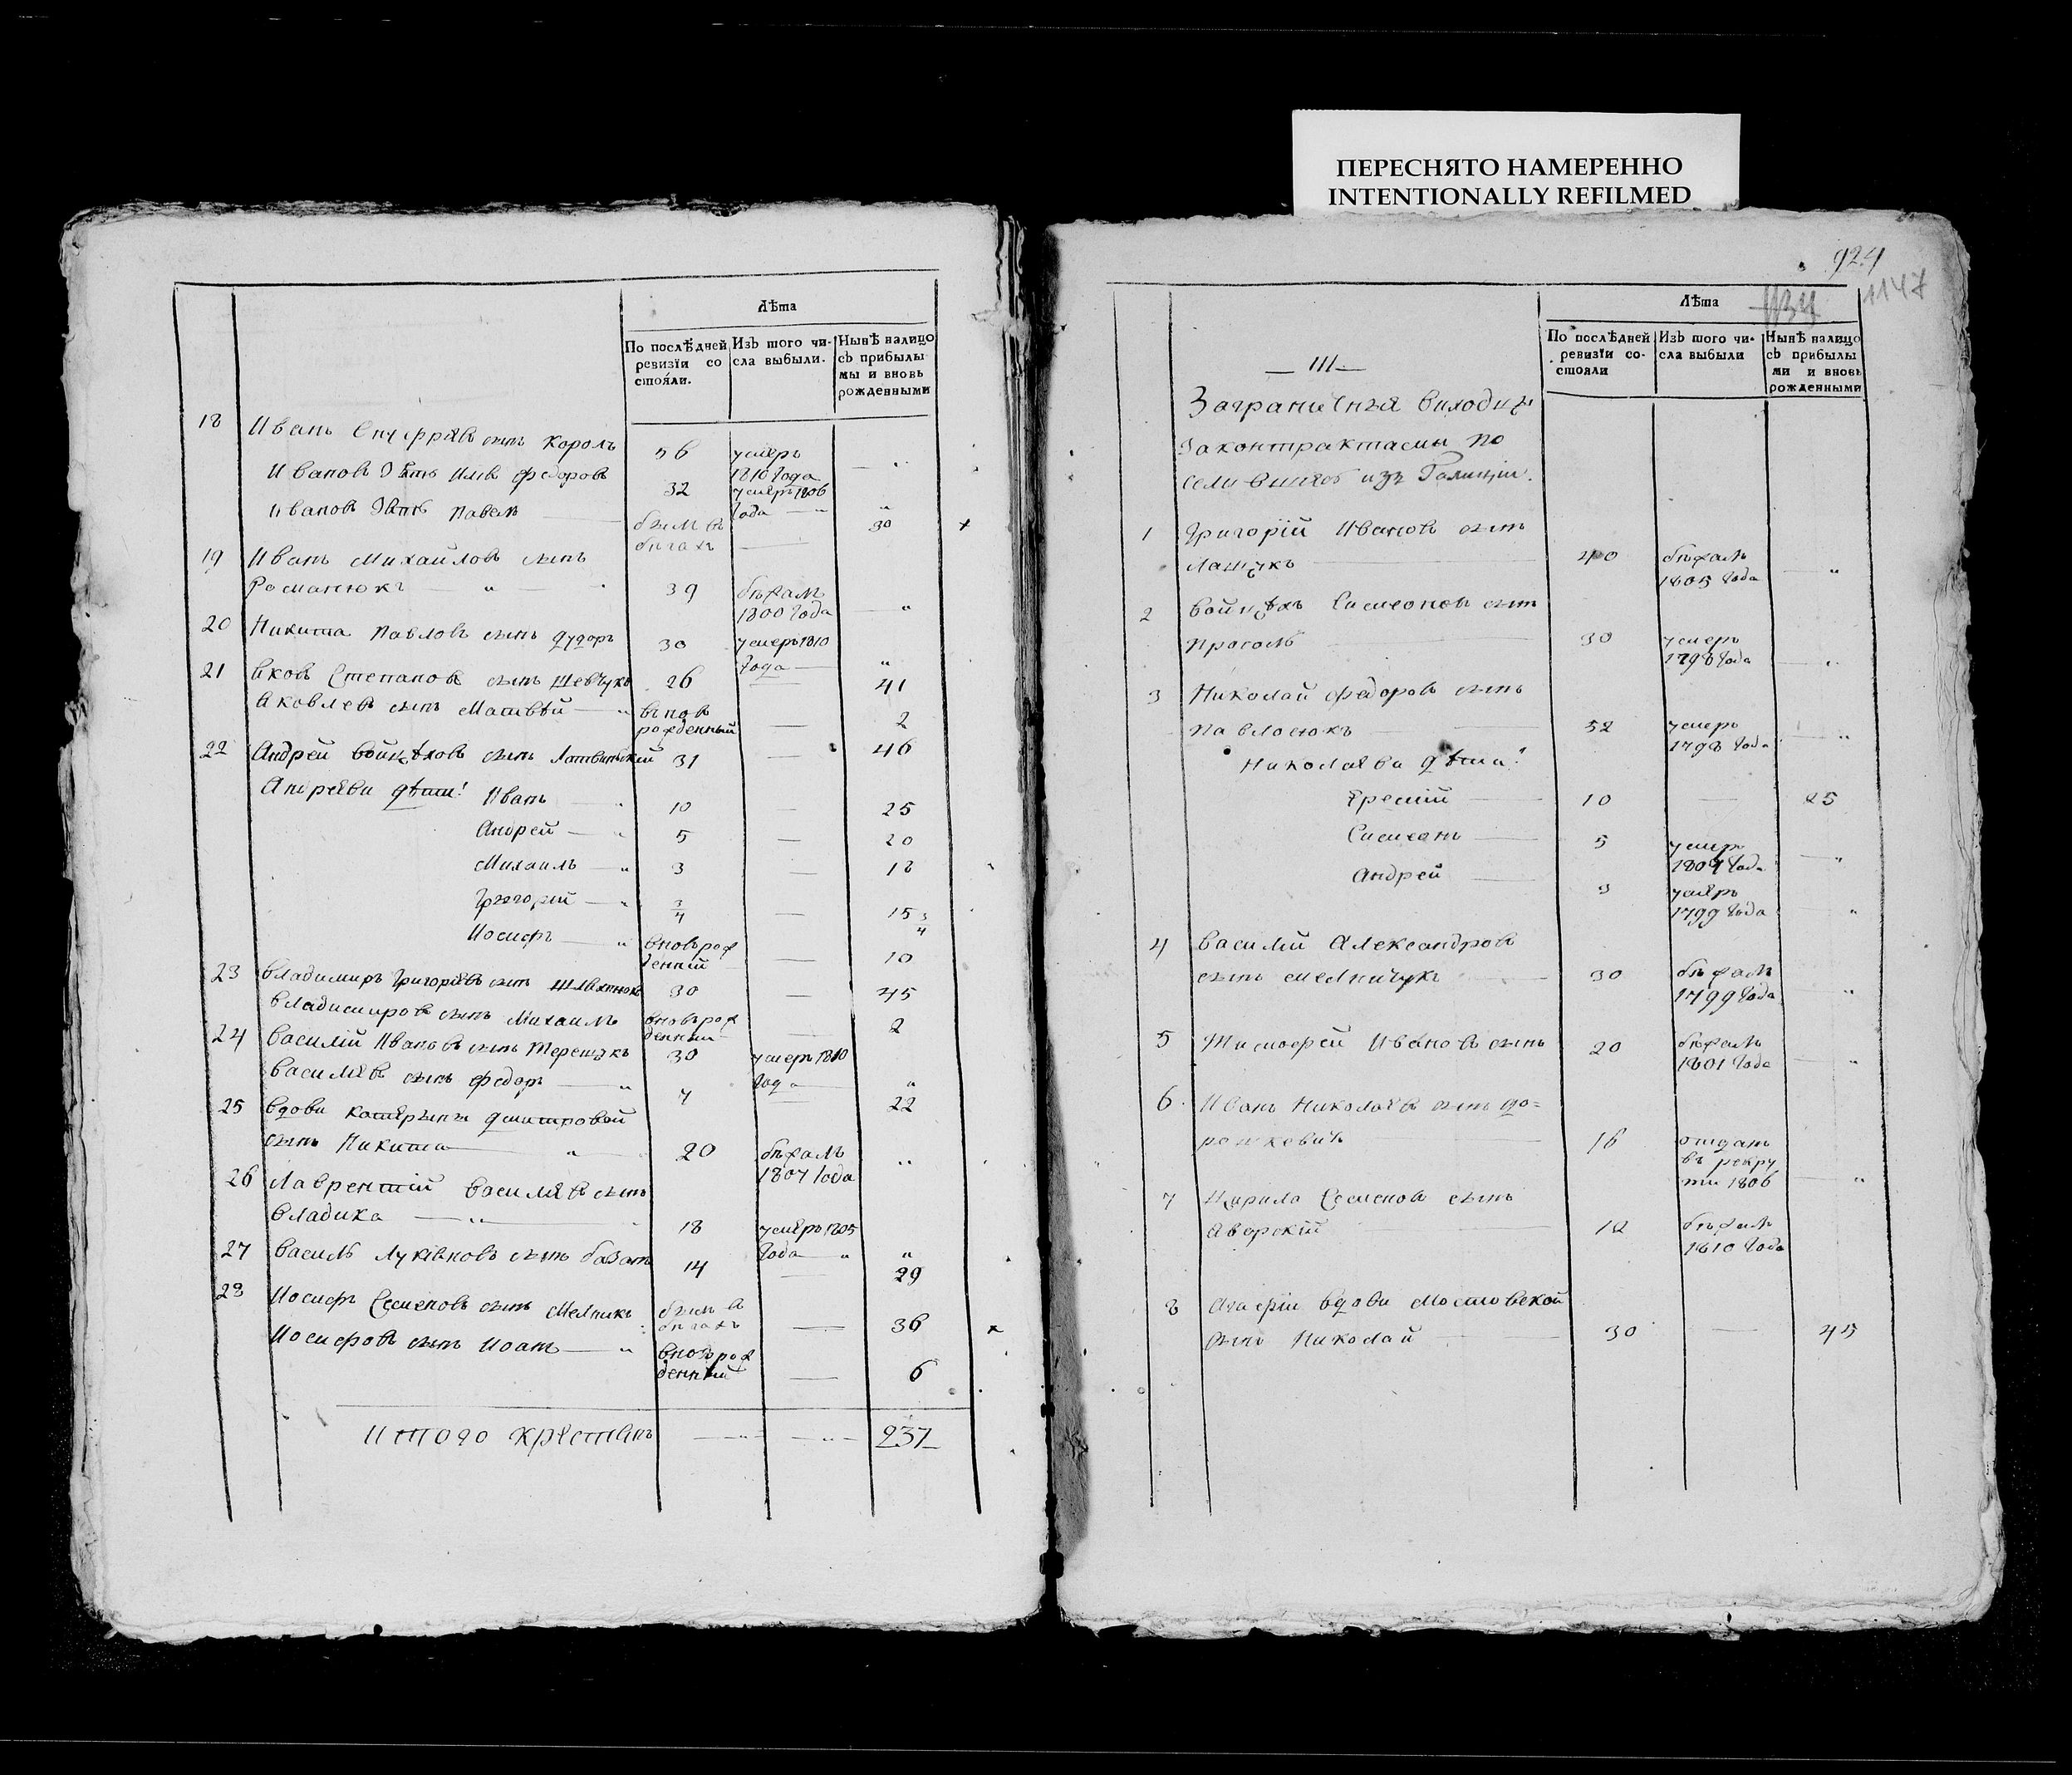 ПЕРЕСНЯТО НАМЕРЕННО
INTENTIONALLY REFILMED
Лѣта
По послѣдней ревизїи со стояли.
Изъ того чи- сла выбыли.
Нынѣ налицо съ прибылы мы и вновь рожденными
18 Иванъ сынъ Король 56 умеръ 1810 года
Ивановъ Зять Илїя Федоровъ 32 умеръ 1806 года
Ивановъ Зять Павелъ былъ въ бѣгахъ 30
19 Иванъ Михайловъ сынъ
Романюкъ 39 бѣжалъ 1800 года
20 Никита Павловъ сынъ 30 умеръ 1810 года
21 Яковъ Степановъ сынъ Шевчукъ 26 41
Яковлевъ сынъ Матвѣй вновь рожденный 2
22 Андрей Войцѣховъ сынъ 31 46
дѣти: Иванъ 10 25
Андрей 5 20
Михаилъ 3 18
Григорїй 3/4 15 3/4
Иосифъ вновь рожденный 10
23 Владимиръ Григорїевъ сынъ 30 45
Владимировъ сынъ Михаилъ вновь рожденный 2
24 Василїй Ивановъ сынъ Терещукъ 30 умеръ 1810 года
Василїевъ сынъ Федоръ 7 22
25 Вдовы Катерины Дмитровой
сынъ Никита 20 бѣжалъ 1807 года
26 Лаврентїй Василїевъ сынъ
Владика 18 умеръ 1805 года
27 Василь сынъ 14 29
28 Иосифъ Семеновъ сынъ Мелникъ былъ въ бѣгахъ 36
Иосифовъ сынъ Иоанъ вновь рожденный 6
Итого крестянъ 237
924
1147
Лѣта
По послѣдней ревизїи со- стояли
Изъ того чи- сла выбыли
Нынѣ налицо съ прибылы ми и вновь рожденными
III
Заграничныя виходцы
Законтрактамы по
селившїяся изъ Галицїи.
1 Григорїй Ивановъ сынъ
Лащукъ 40 бѣжалъ 1805 года
2 Войцѣхъ Симеоновъ сынъ
30 умеръ 1798 года
3 Николай Федоровъ сынъ
Павлюкъ 52 умеръ 1798 года
Николаяви дѣти:
10 25
Симеонъ 5 умеръ 1804 года
Андрей 3 умеръ 1799 года
4 Василїй Александровъ
сынъ Мелничукъ 30 бѣжалъ 1799 года
5 Тимофей Ивановъ сынъ 20 бѣжалъ 1801 года
6. Иванъ Николаевъ сынъ до=
рошкевичъ 16 отданъ въ рекру ти 1806
7 Кирила Семеновъ сынъ
Яворскїй 12 бѣжалъ 1810 года
8 вдовы Мостовской
сынъ Николай 30 45